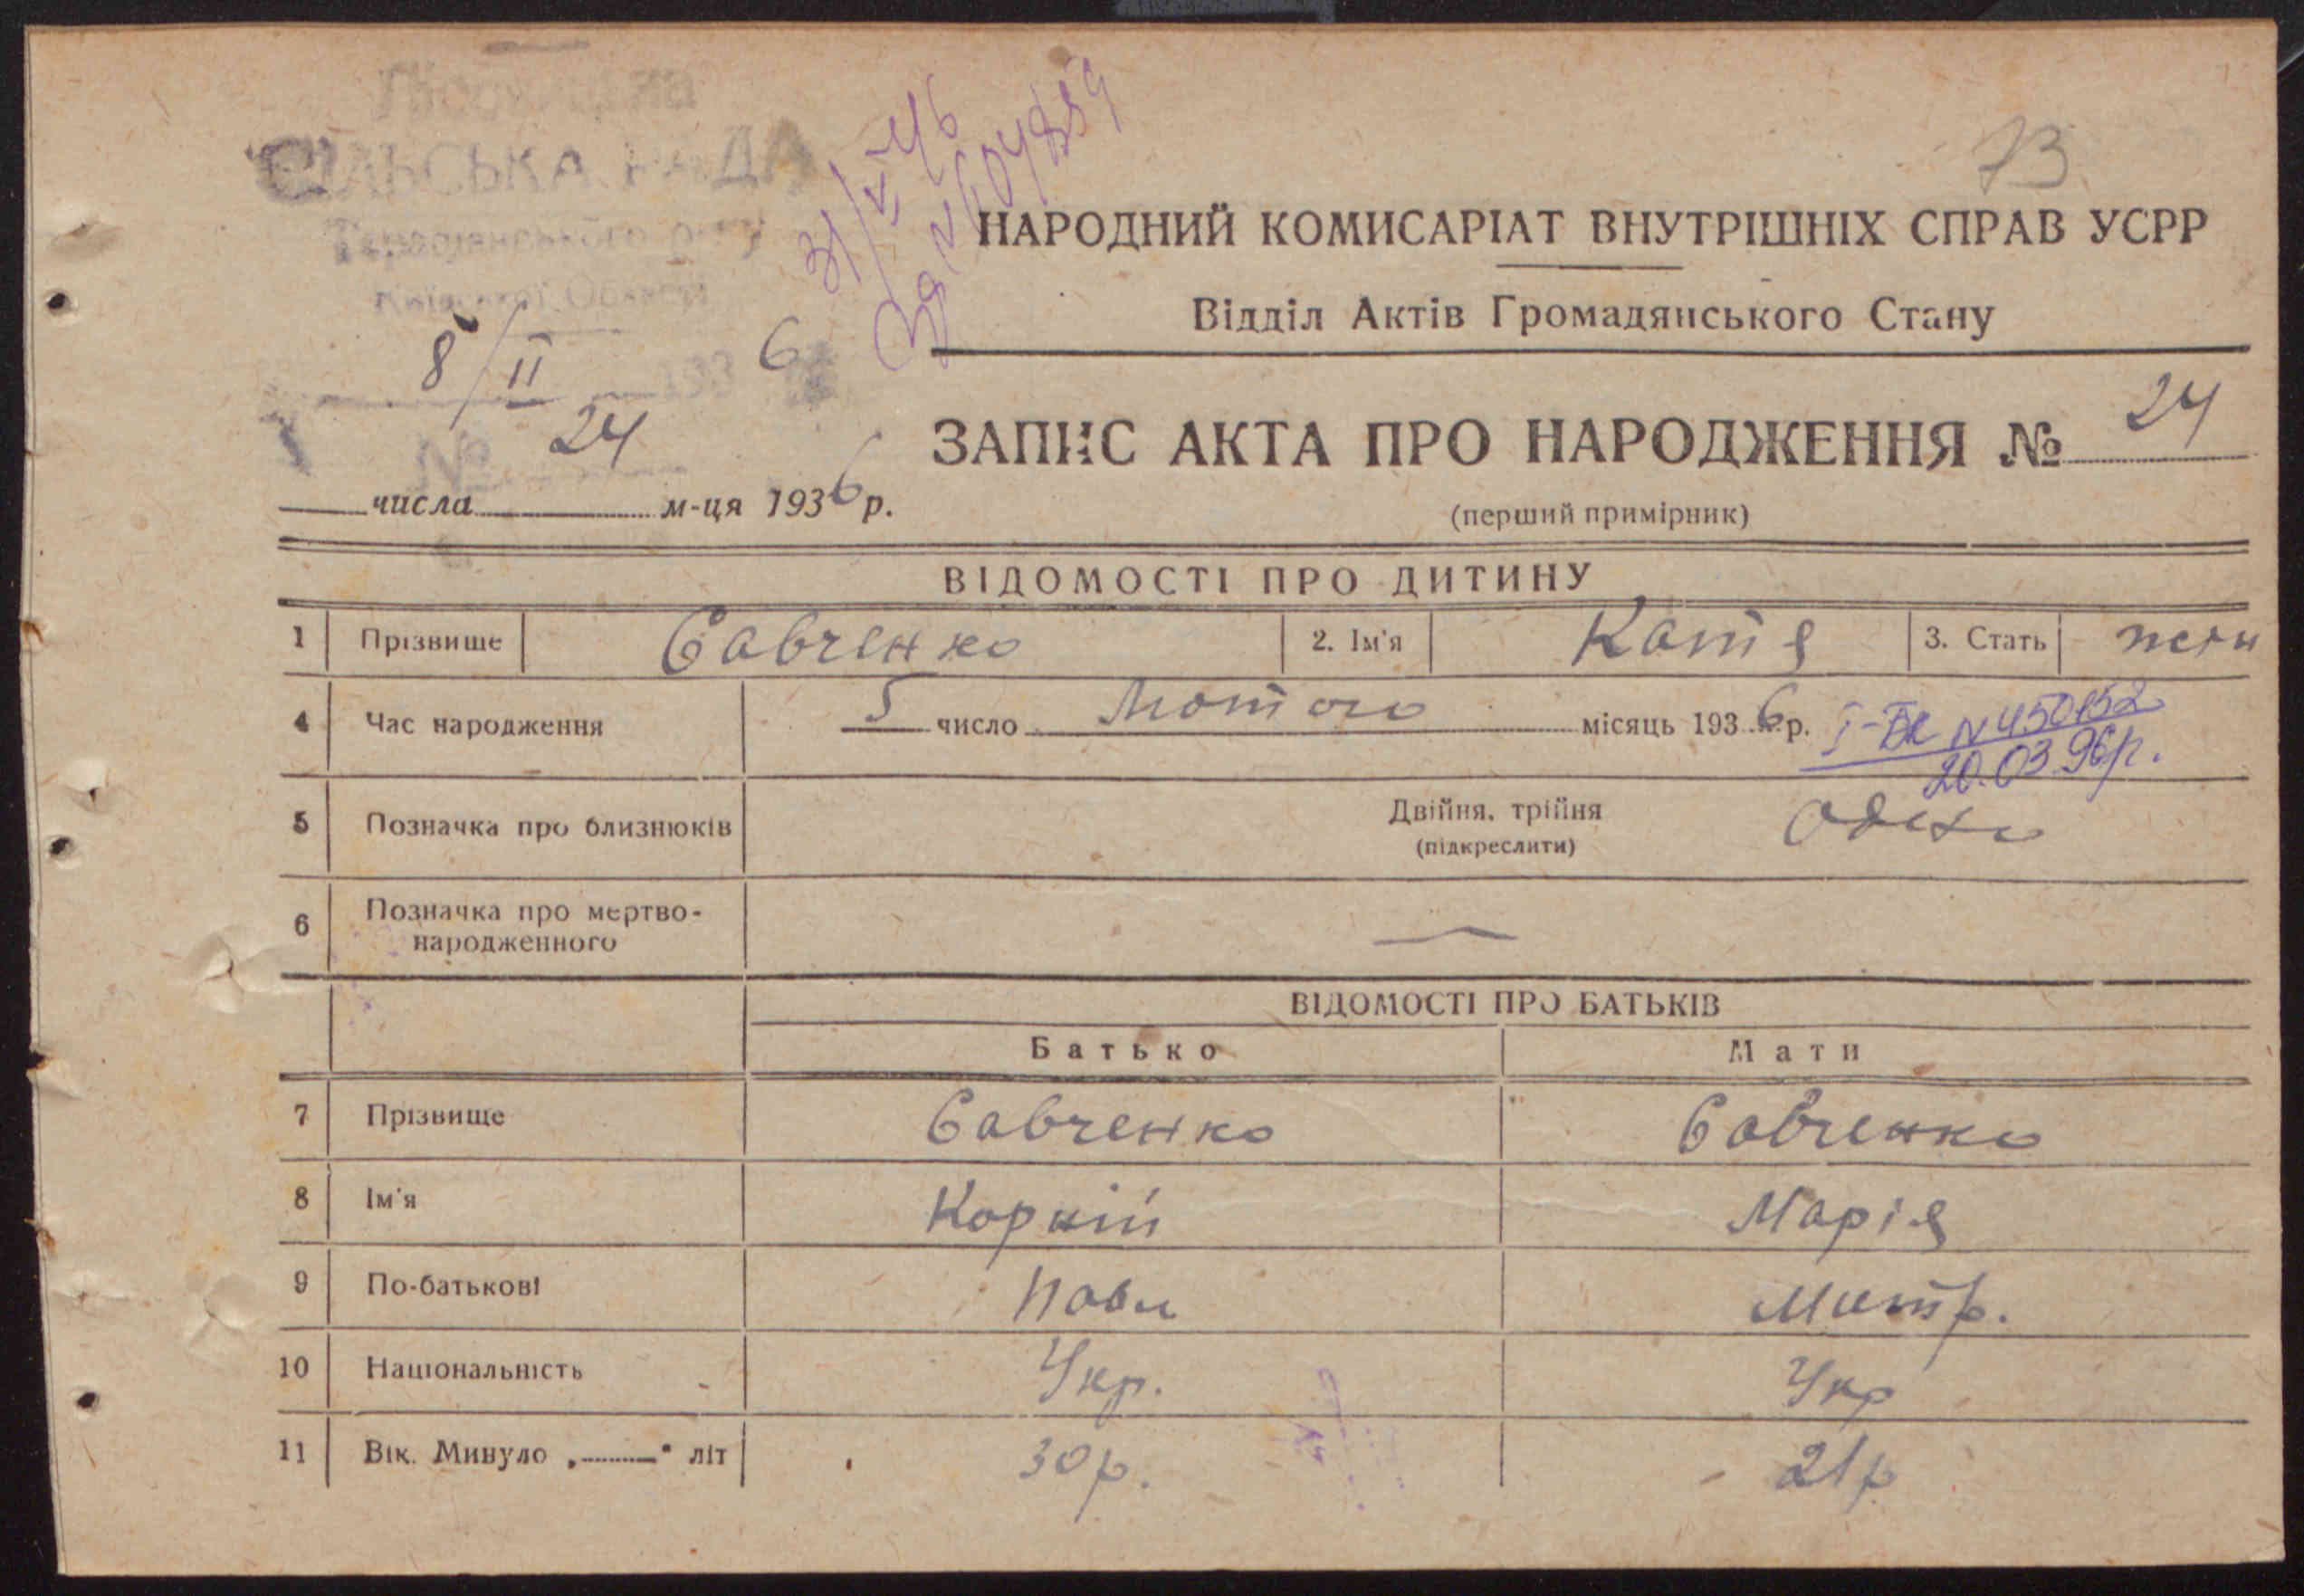 СІЛЬСЬКА РАДА
Київської Області
8/II 1936
№ 24
31/V-46
73
НАРОДНИЙ КОМИСАРІАТ ВНУТРІШНІХ СПРАВ УСРР
Відділ Актів Громадянського Стану
ЗАПИС АКТА ПРО НАРОДЖЕННЯ № 24
числа м-ця 1936 р.
(перший примірник)
ВІДОМОСТІ ПРО ДИТИНУ
1 Прізвище Савченко 2. Ім'я Катя 3. Стать жен
4 Час народження 5 число Лютого місяць 1936 р. І-БК N 450152
20.03.96р.
5 Позначка про близнюків Двійня, трійня
(підкреслити) одно
6 Позначка про мертво-
народженного —
ВІДОМОСТІ ПРО БАТЬКІВ
Батько Мати
7 Прізвище Савченко Савченко
8 Ім'я Корній Марія
9 По-батькові Павл Митр.
10 Національність Укр. Укр
11 Вік. Минуло „ " літ 30 р. 21 р